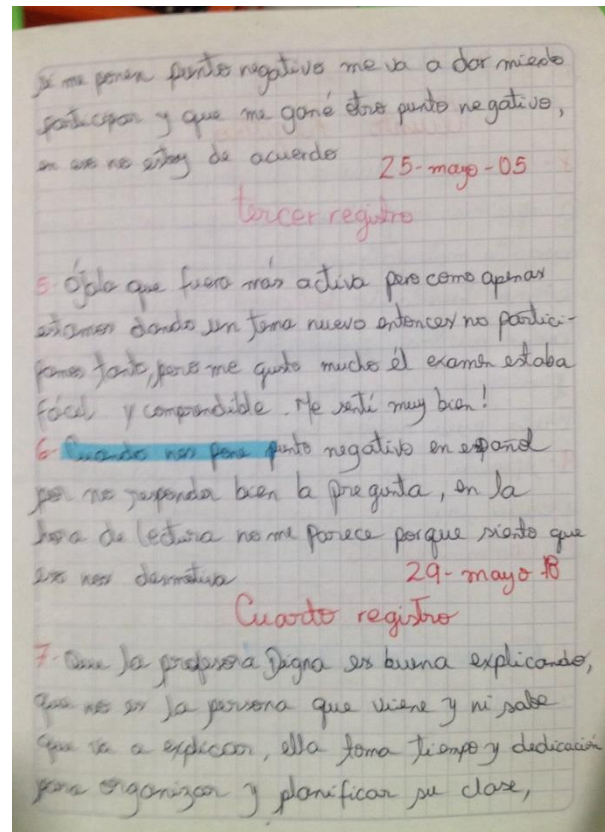 si me ponen punto negativo me va a dar miedo
participar y que me gané otro punto negativo,
en eso no estoy de acuerdo 25-mayo-05
tercer registro
5- Ójala que fuera más activa pero como apenas
estamos dando un tema nuevo entonces no partici-
pamos tanto, pero me gusto mucho él examen estaba
fácil y comprendible. Me sentí muy bien!
6- Cuando nos pone punto negativo en español
por no responder bien la pregunta, en la
hora de lectura no me parece porque siento que
eso nos desmotiva 29-mayo 18
Cuarto registro
7- Que la profesora Digna es buena explicando,
que no es la persona que viene y ni sabe
que va a explicar, ella toma tiempo y dedicación
para organizar y planificar su clase,